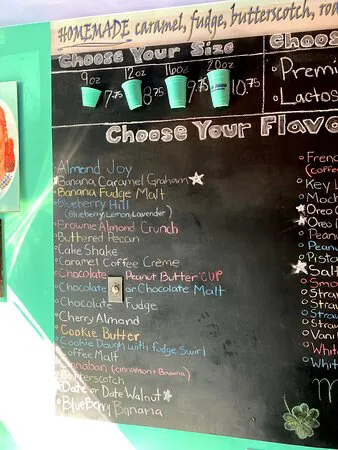 HOMEMADE caramel, fudge, butterscotch, roa
Choose Your Size
9oz 7.75 12oz 8.75 16oz 9.75 20oz 10.75
Choos
Premi
Lactos
Choose Your Flavo
Almond Joy
Banana Caramel Graham
Banana Fudge Malt
Blueberry Hill
(Blueberry Lemon Lavender)
Brownie Almond Crunch
Buttered Pecan
Cake Shake
Caramel Coffee Crème
Chocolate Peanut Butter CUP
Chocolate or Chocolate Malt
Chocolate Fudge
Cherry Almond
Cookie Butter
Cookie Dough with Fudge Swirl
Coffee Malt
Cinnabon (cinnamon + Banana)
Butterscotch
Date or Date Walnut
BlueBerry Banana
Frenc
(coffe
Key L
Moch
Oreo
Oreo
Peanu
Peanu
Pista
Salt
Smo
Straw
Straw
Straw
Vanil
White
White